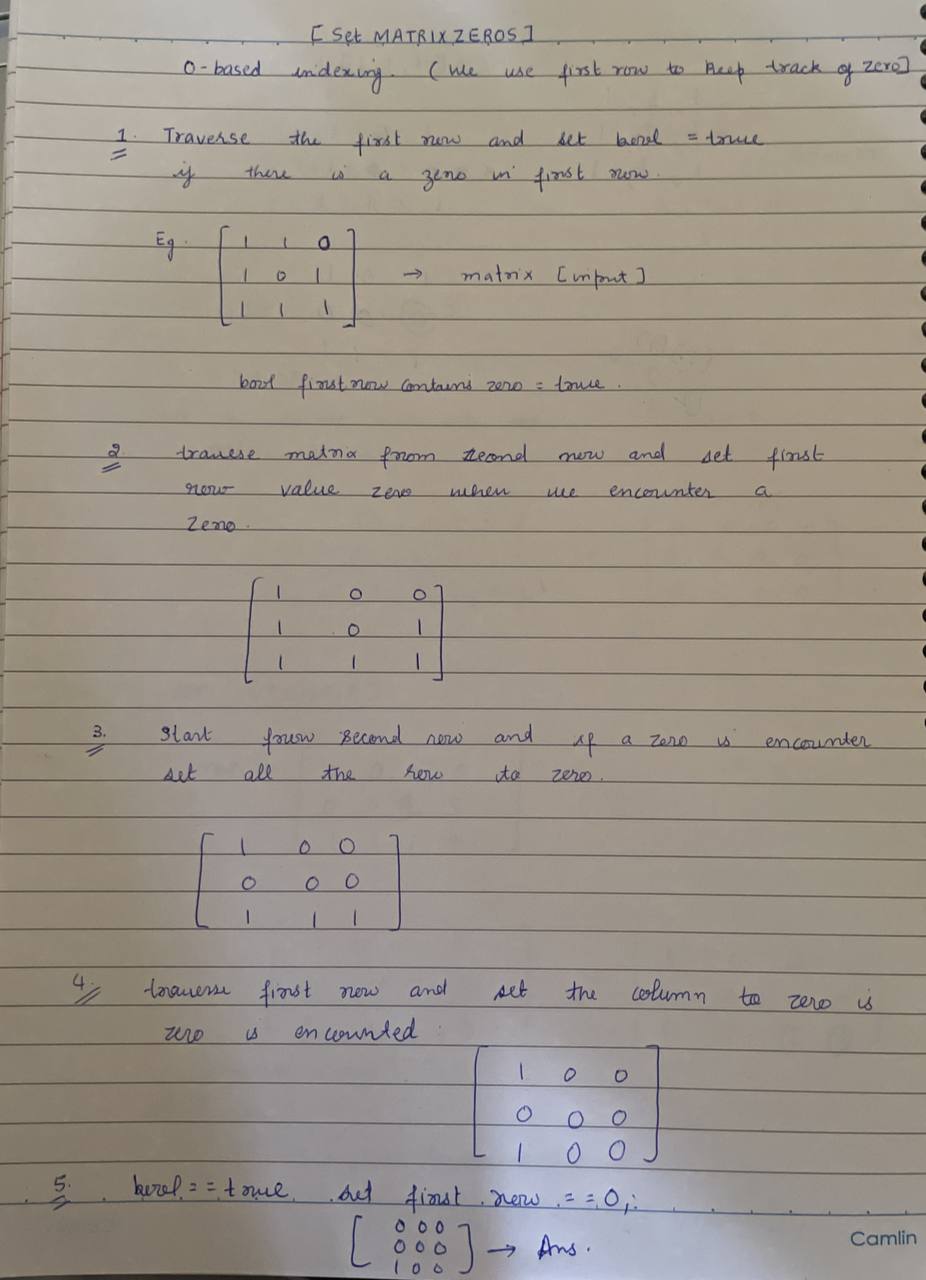 [ Set MATRIX ZEROS ]
0-based indexing. ( We use first row to keep track of zero ]
1. Traverse the first row and set bool = true
if there is a zero in first row.
Eg. [ 1 1 0
1 0 1 → matrix [input]
1 1 1 ]
bool first row contains zero = true.
2. travese matrix from second row and set first
row value zero when we encounter a
zero.
[ 1 0 0
1 0 1
1 1 1 ]
3. Start from second row and if a zero is encounter
set all the row to zero.
[ 1 0 0
0 0 0
1 1 1 ]
4. traverse first row and set the column to zero is
zero is encounted
[ 1 0 0
0 0 0
1 0 0 ]
5. bool == true set first row == 0;
[ 0 0 0
0 0 0 → Ans.
1 0 0 ]
Camlin